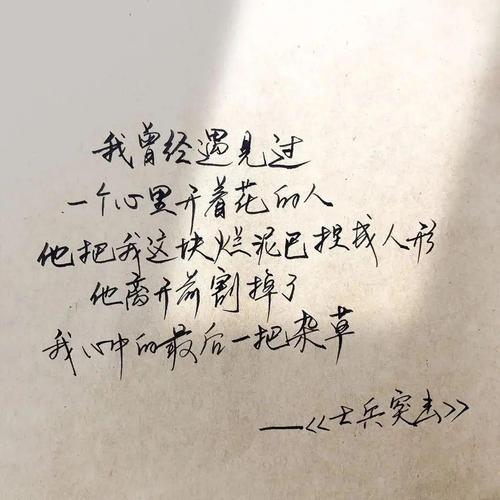 我曾经遇见过
一个心里开着花的人
他把我这块烂泥巴捏成人形
他离开前割掉了
我心中的最后一把杂草
——《士兵突击》